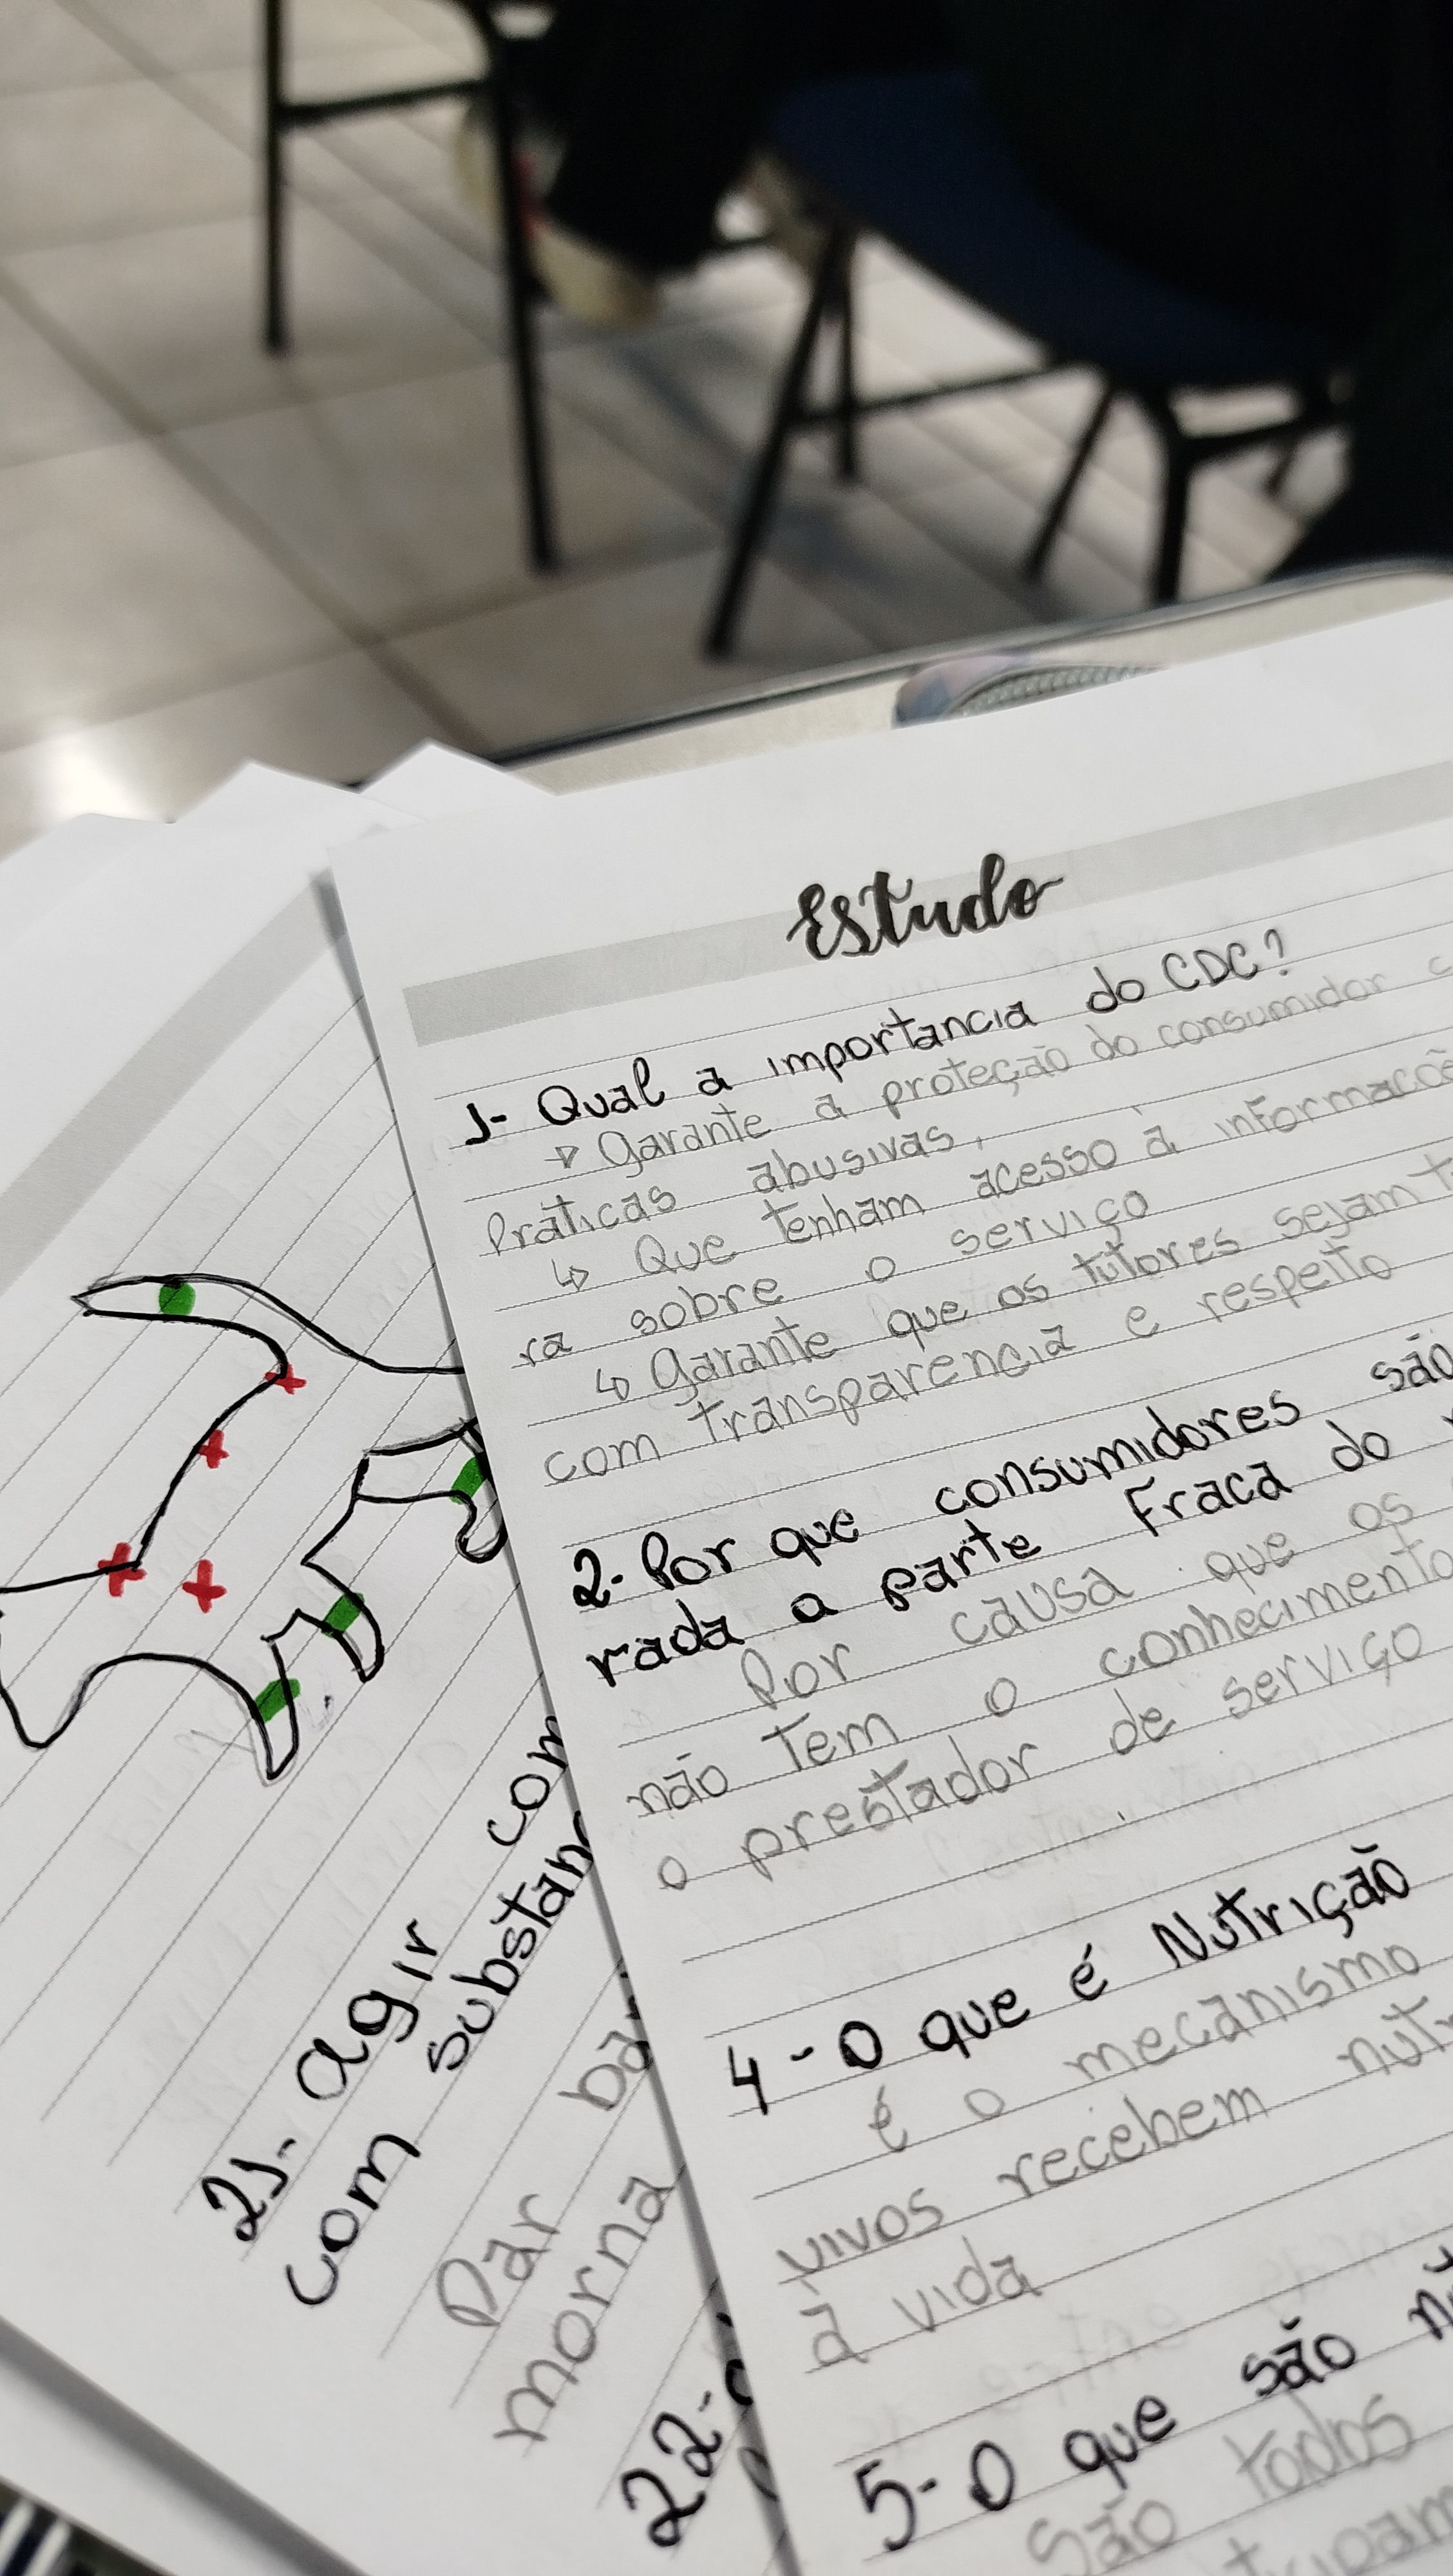 Estudo
1- Qual a importancia do CDC?
↳ Garante a proteção do consumidor
práticas abusivas,
↳ Que tenham acesso à informaçõe
ra sobre o serviço
↳ Garante que os tutores sejam
com transparencia e respeito
2- Por que consumidores são
rada a parte Fraca do
Por causa que os
não tem o conhecimento
o prestador de serviço
4- O que é Nutrição
é o mecanismo
vivos recebem nutr
à vida
5- O que são
São todos
21- agir com
com substanc
Dar ba
morna
22-